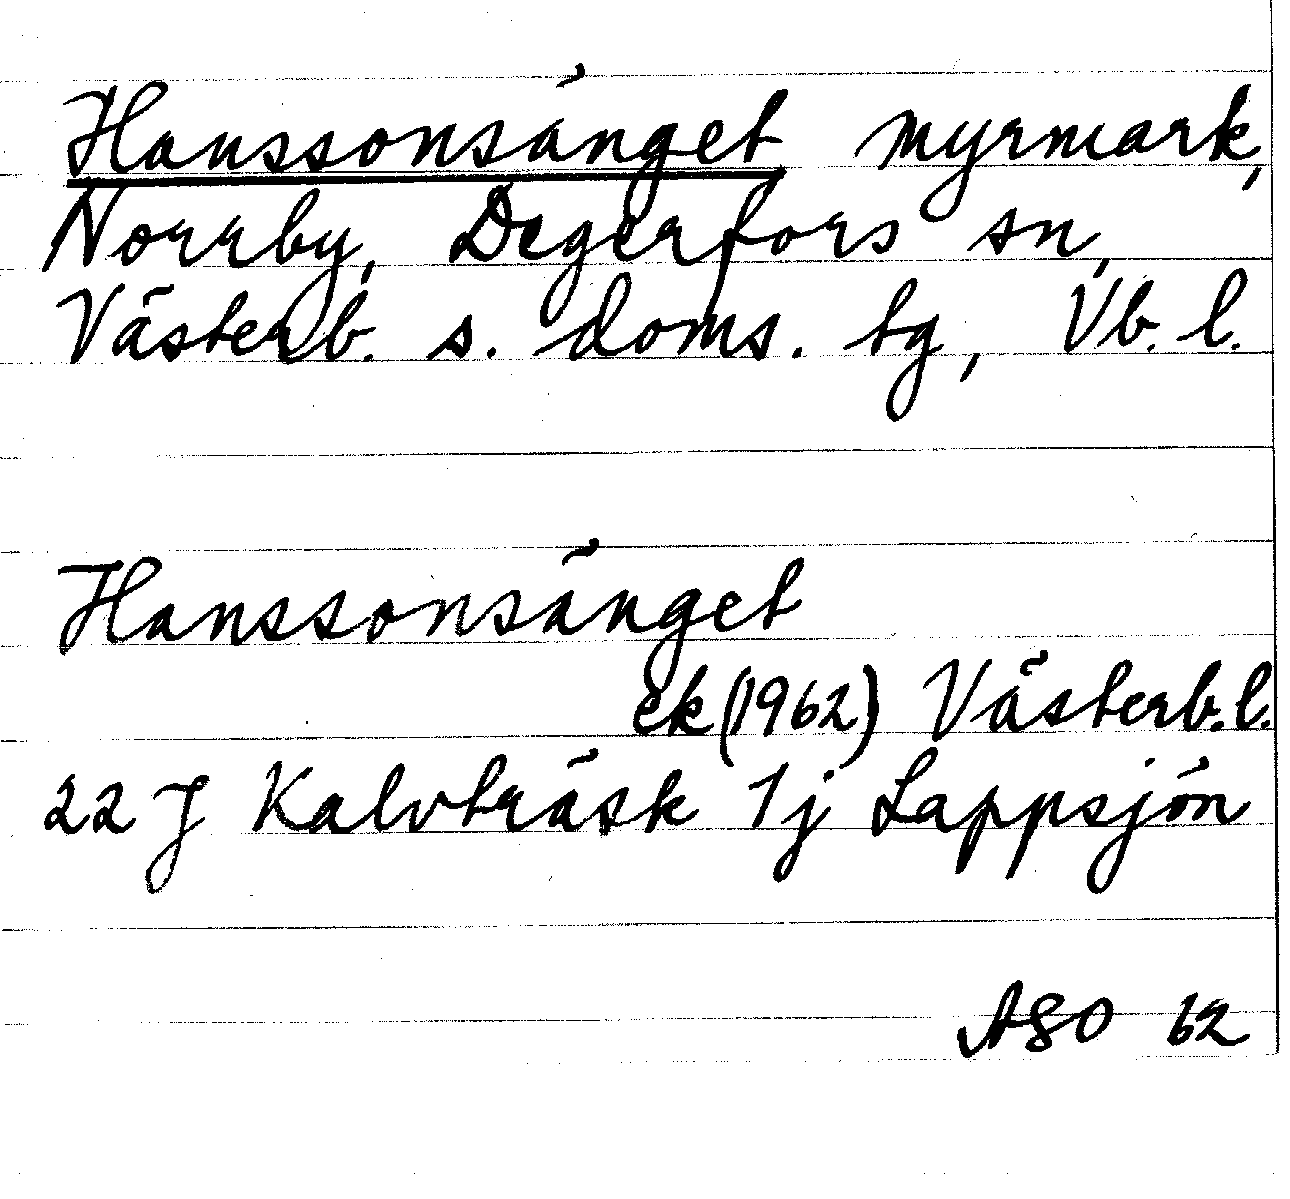 Hanssonsänget myrmark,
Norrby, Degerfors sn,
Västerb. s. doms. tg, Vb. l.
Hanssonsänget
ek (1962) Västerb. l.
22 J Kalvträsk 1j Lappsjön
ASO 62